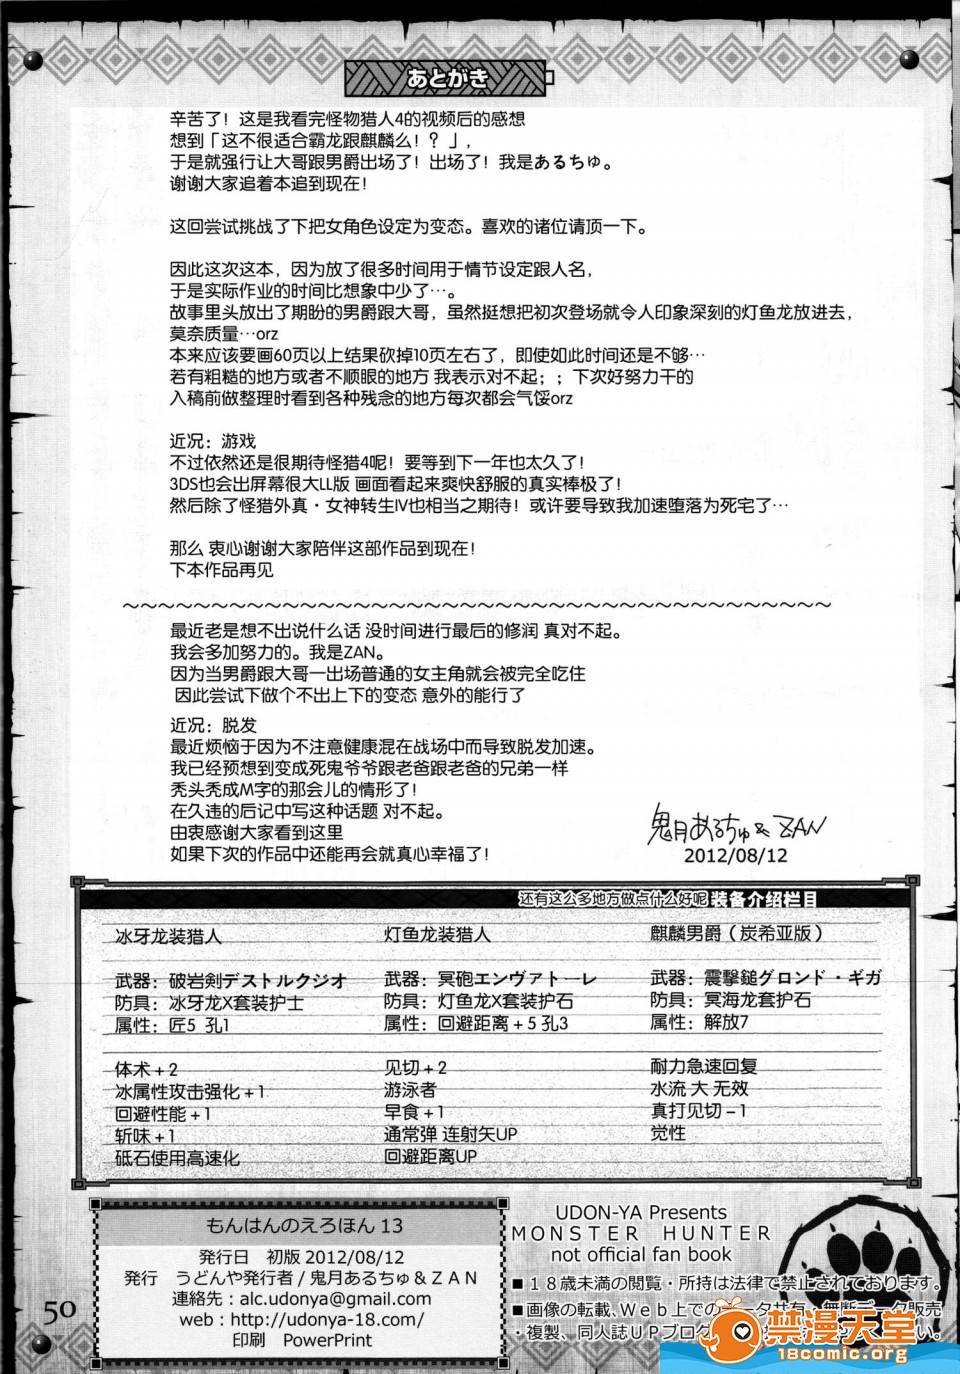 あとがき
辛苦了！这是我看完怪物猎人4的视频后的感想
想到「这不很适合霸龙跟麒麟么！？」，
于是就强行让大哥跟男爵出场了！出场了！我是あるちゅ。
谢谢大家追着本追到现在！
这回尝试挑战了下把女角色设定为变态。喜欢的诸位请顶一下。
因此这次这本，因为放了很多时间用于情节设定跟人名，
于是实际作业的时间比想象中少了…。
故事里头放出了期盼的男爵跟大哥，虽然挺想把初次登场就令人印象深刻的灯鱼龙放进去，
莫奈质量…orz
本来应该要画60页以上结果砍掉10页左右了，即使如此时间还是不够…
若有粗糙的地方或者不顺眼的地方 我表示对不起；；下次好努力干的
入稿前做整理时看到各种残念的地方每次都会气馁orz
近况：游戏
不过依然还是很期待怪猎4呢！要等到下一年也太久了！
3DS也会出屏幕很大LL版 画面看起来爽快舒服的真实棒极了！
然后除了怪猎外真・女神转生IV也相当之期待！或许要导致我加速堕落为死宅了…
那么 衷心谢谢大家陪伴这部作品到现在！
下本作品再见
～～～～～～～～～～～～～～～～～～～～～～～～～～～～～～～～～～～～～～～
最近老是想不出说什么话 没时间进行最后的修润 真对不起。
我会多加努力的。我是ZAN。
因为当男爵跟大哥一出场普通的女主角就会被完全吃住
因此尝试下做个不出上下的变态 意外的能行了
近况：脱发
最近烦恼于因为不注意健康混在战场中而导致脱发加速。
我已经预想到变成死鬼爷爷跟老爸跟老爸的兄弟一样
秃头秃成M字的那会儿的情形了！
在久违的后记中写这种话题 对不起。
由衷感谢大家看到这里
如果下次的作品中还能再会就真心幸福了！
鬼月あるちゅ& ZAN
2012/08/12
还有这么多地方做点什么好呢 装备介绍栏目
冰牙龙装猎人
武器：破岩剣デストルクジオ
防具：冰牙龙X套装护士
属性：匠5 孔1
体术＋2
冰属性攻击强化＋1
回避性能＋1
斩味＋1
砥石使用高速化
灯鱼龙装猎人
武器：冥砲エンヴァトーレ
防具：灯鱼龙X套装护石
属性：回避距离＋5 孔3
见切＋2
游泳者
早食＋1
通常弹 连射矢UP
回避距离UP
麒麟男爵（炭希亚版）
武器：震撃鎚グロンド・ギガ
防具：冥海龙套护石
属性：解放7
耐力急速回复
水流 大 无效
真打见切－1
觉性
もんはんのえろほん 13
発行日　初版 2012/08/12
発行　うどんや発行者 / 鬼月あるちゅ＆ＺＡＮ
連絡先：alc.udonya@gmail.com
web：http://udonya-18.com/
印刷　PowerPrint
50
UDON-YA Presents
MONSTER HUNTER
not official fan book
■１８歳未満の閲覧・所持は法律で禁止されております。
■画像の転載、Ｗｅｂ上でのデータ共有、無断データ販売
・複製、同人誌ＵＰブログ
い。
禁漫天堂
18comic.org